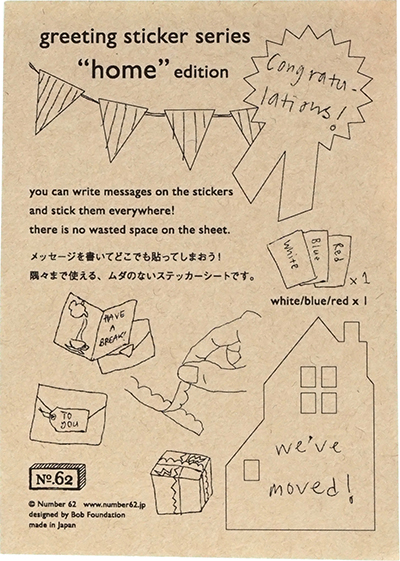 greeting sticker series
“home” edition
Congratu-
lations!
you can write messages on the stickers
and stick them everywhere!
there is no wasted space on the sheet.
メッセージを書いてどこでも貼ってしまおう!
隅々まで使える、ムダのないステッカーシートです。
White
Blue
Red
x 1
white/blue/red x 1
HAVE
A
BREAK!
TO
YOU
we've
moved!
No.62
© Number 62 www.number62.jp
designed by Bob Foundation
made in Japan